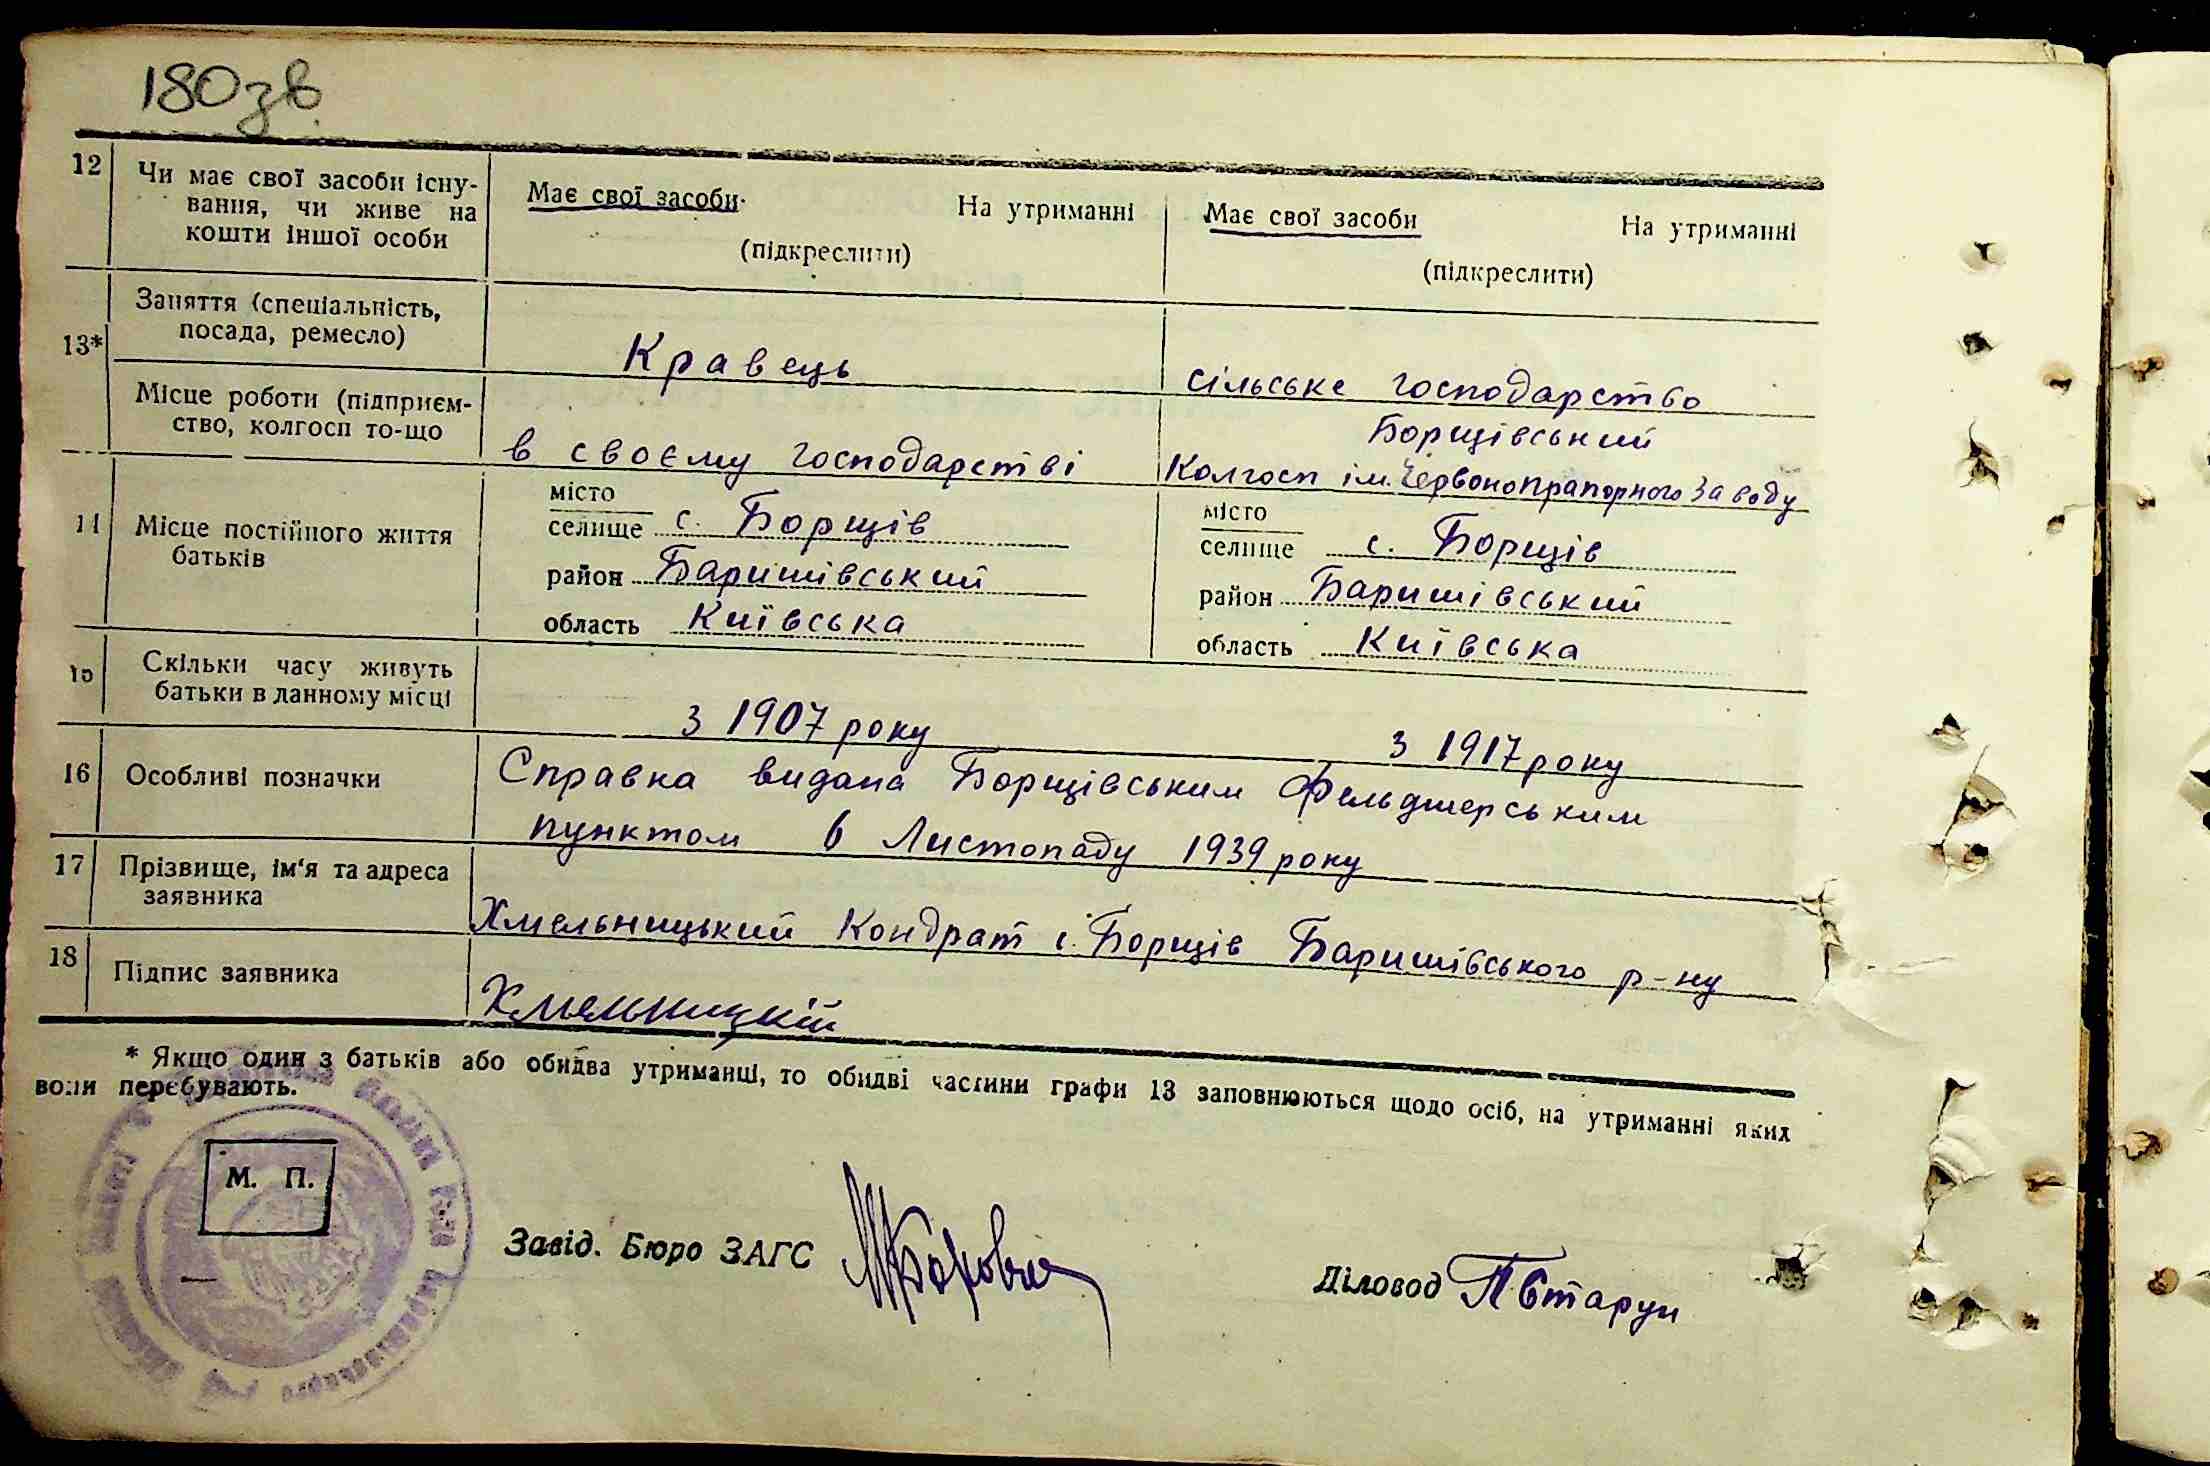 180зв.
12 Чи має свої засоби існу-
вання, чи живе на
кошти іншої особи
Має свої засоби На утриманні
(підкреслити)
Має свої засоби На утриманні
(підкреслити)
13*
Заняття (спеціальність,
посада, ремесло)
Кравець
сільське господарство
Місце роботи (підприєм-
ство, колгосп то-що
в своєму господарстві
Борщівський
Колгосп ім. Червонопрапорного Заводу
14 Місце постійного життя
батьків
місто
селище с. Борщів
район Баришівський
область Київська
місто
селище с. Борщів
район Баришівський
область Київська
15 Скільки часу живуть
батьки в данному місці
з 1907 року
з 1917 року
16 Особливі позначки
Справка видана Борщівським Фельдшерським
пунктом 6 Листопаду 1939 року
17 Прізвище, ім'я та адреса
заявника
Хмельницький Кондрат с. Борщів Баришівського р-ну
18 Підпис заявника
Хмельницкій
* Якщо один з батьків або обидва утриманці, то обидві частини графи 13 заповнюються щодо осіб, на утриманні яких
вони перебувають.
М. П.
Завід. Бюро ЗАГС
Діловод П Старун